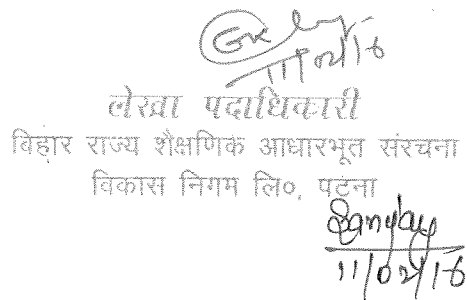 11/02/16
लेखा पदाधिकारी
विहार राज्य शैक्षणिक आधारभूत संरचना
विकास निगम लि०, पटना
Sanjay
11/02/16